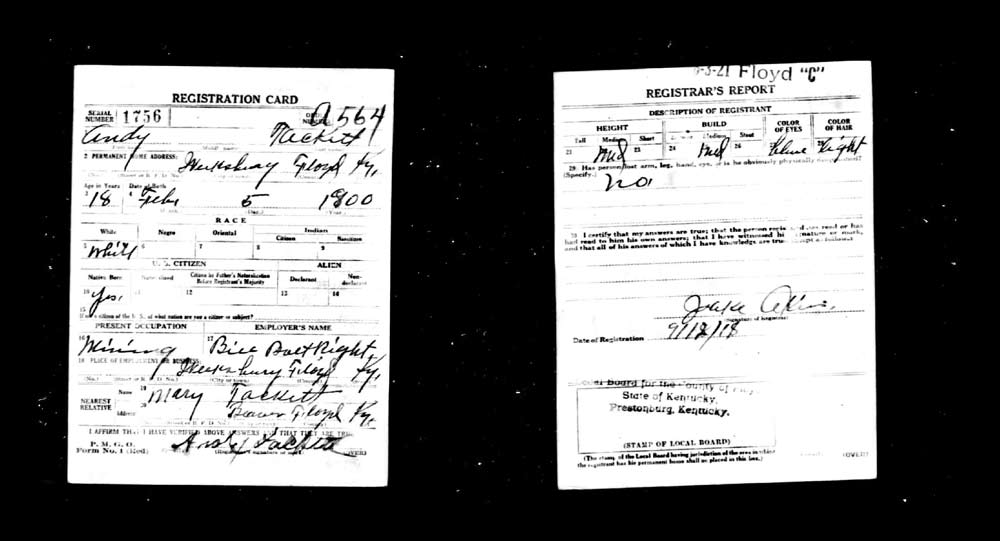 REGISTRATION CARD
SERIAL NUMBER 1756 ORDER NUMBER A564
Andy Tackett
2 PERMANENT HOME ADDRESS:
Floyd Ky,
Age in Years Date of Birth
3 18 4 Feb, 5 1900
(Day.) (Year.)
RACE
White Negro Oriental Indian
Citizen Noncitizen
5 White 6 7 8 9
U. S. CITIZEN ALIEN
Native Born Naturalized Citizen by Father's Naturalization Before Registrant's Majority Declarant Non-declarant
10 Yes, 11 12 13 14
15 If not a citizen of the U. S., of what nation are you a citizen or subject?
PRESENT OCCUPATION EMPLOYER'S NAME
16 Mining 17 Bill
18 PLACE OF EMPLOYMENT OR BUSINESS:
Floyd Ky,
(No.) (Street or R. F. D. No.) (City or town)
NEAREST RELATIVE Name 19 Mary Tackett
Address 20 Beaver Floyd Ky,
I AFFIRM THAT I HAVE VERIFIED ABOVE ANSWERS AND THAT THEY ARE TRUE
P. M. G. O.
Form No. 1 (Red) Andy Tackett (OVER)
3-21 Floyd "C"
REGISTRAR'S REPORT
DESCRIPTION OF REGISTRANT
HEIGHT BUILD COLOR OF EYES COLOR OF HAIR
Tall Medium Short Medium Stout
21 Med 23 24 Med 26 Blue light
29 Has person lost arm, leg, hand, eye, or is he obviously physically disqualified?
(Specify.) no,
30 I certify that my answers are true; that the person registered has read or has
had read to him his own answers; that I have witnessed his signature or mark,
and that all of his answers of which I have knowledge are true, except as follows:
Jake Akins,
(Signature of Registrar)
Date of Registration 9/12/18
Local Board for the County of
State of Kentucky,
Prestonburg, Kentucky.
(STAMP OF LOCAL BOARD)
(The stamp of the Local Board having jurisdiction of the area in which
the registrant has his permanent home shall be placed in this box.)
(OVER)